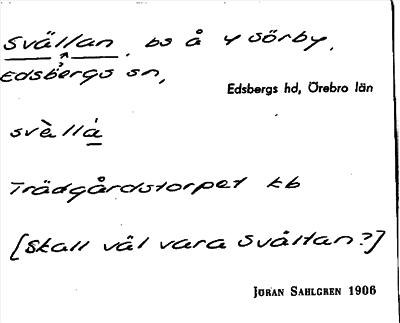 Svällan, bs å y Sörby,
Edsbergs sn,
Edsbergs hd, Örebro län
svὲllá
Trädgårdstorpet tb
[Skall väl vara Svältan?]
JÖRAN SAHLGREN 1906